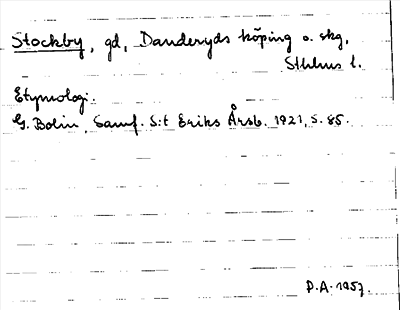 Stockby, gd, Danderyds köping o. skg,
Sthlms l.
Etymologi.
G. Bolin, Samf. S:t Eriks Årsb. 1921, s. 85.
P.A. 1957.